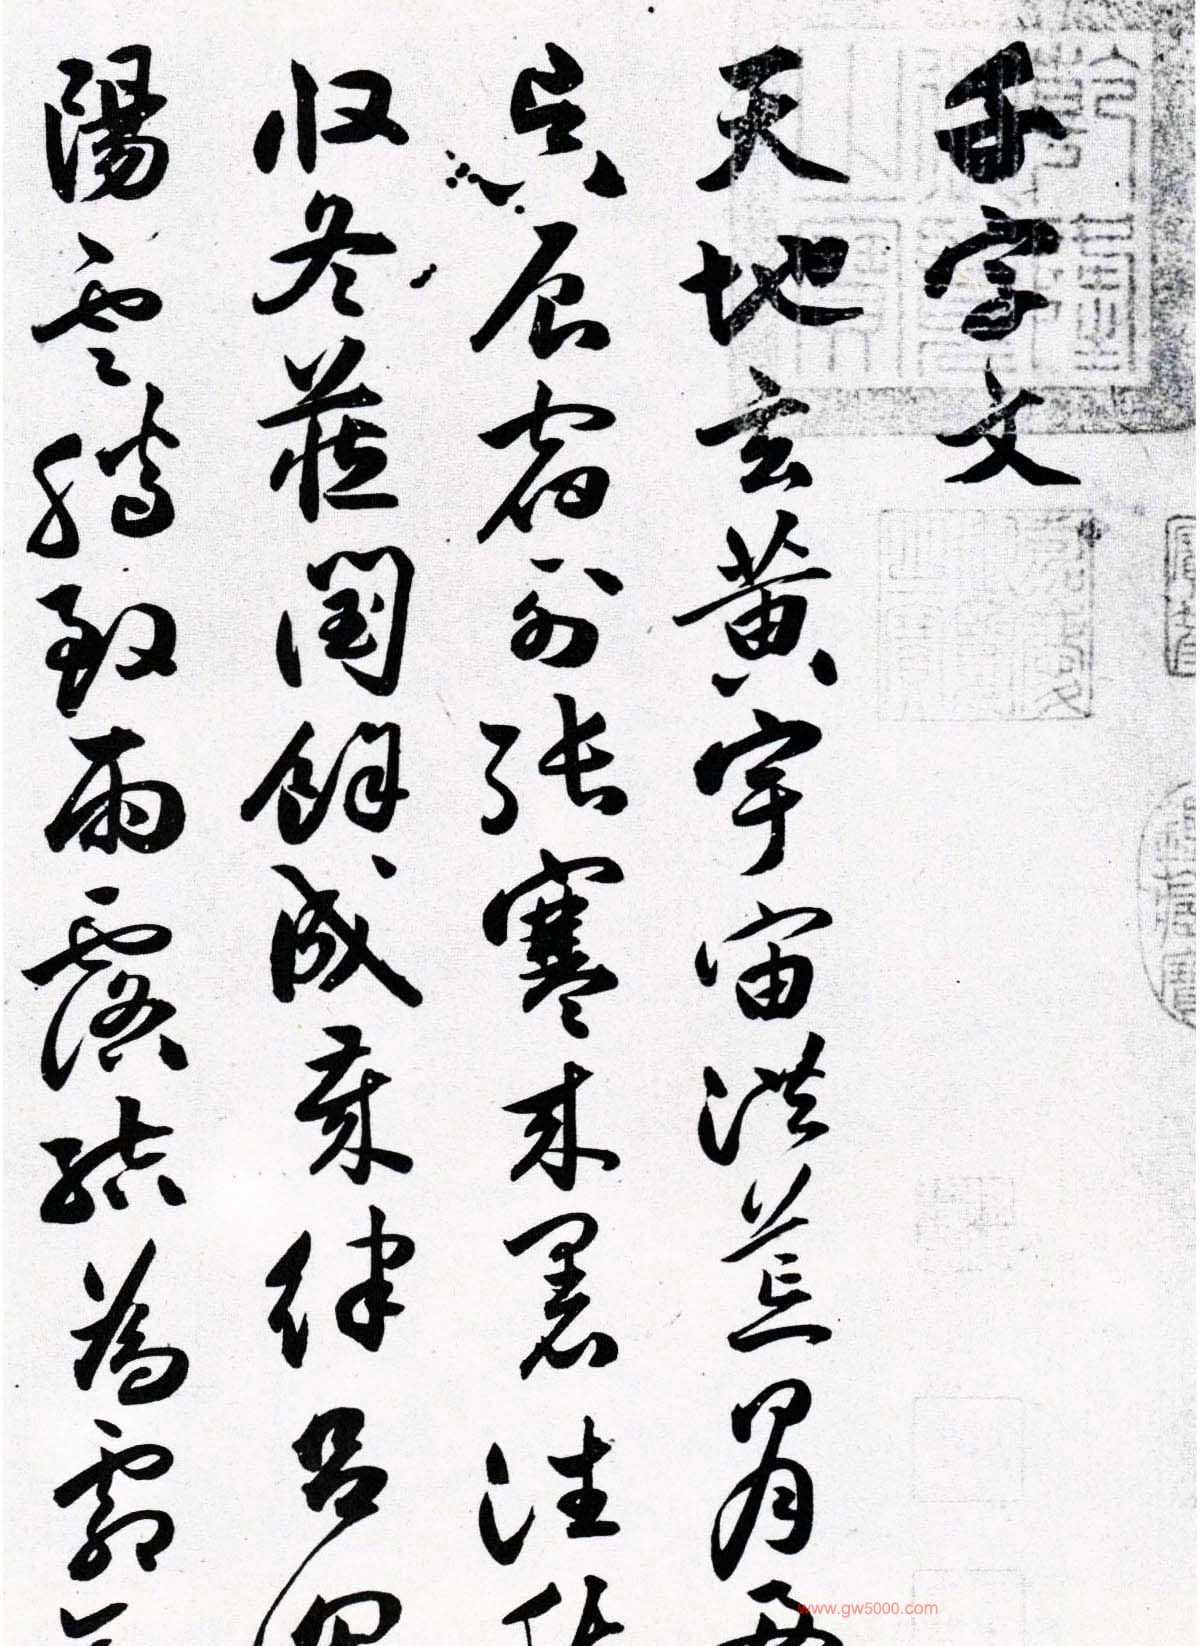 千字文
天地玄黄宇宙洪荒日月
昃辰宿列張寒来暑往
收冬蔵閏餘成歳律呂
陽雲騰致雨露結為霜
www.gw5000.com